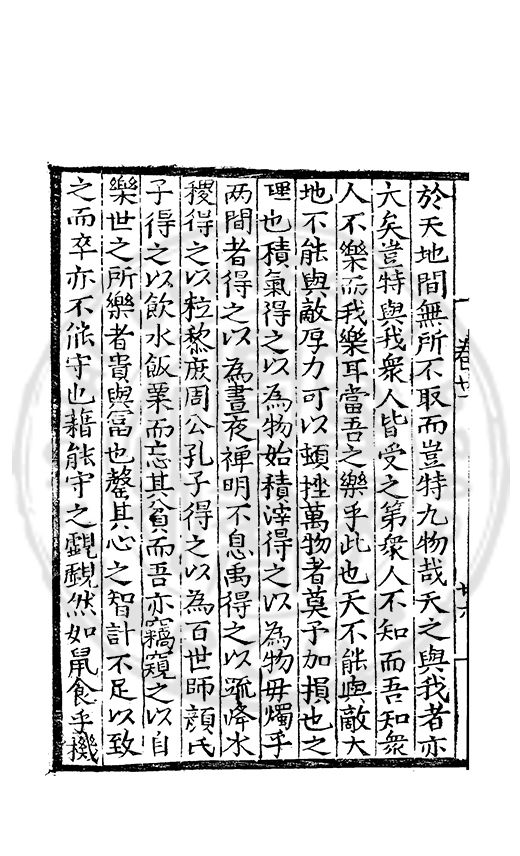 於天地間無所不取而豈特九物哉天之與我者亦
大矣豈特與我衆人皆受之第衆人不知而吾知衆
人不樂而我樂耳當吾之樂乎此也天不能與敵大
地不能與敵厚力可以頓挫萬物者莫予加損也之
理也積氣得之以為物始積滓得之以為物毋燭乎
两間者得之以為晝夜禪明不息禹得之以䟽洚水
稷得之以粒黎庶周公孔子得之以為百世師顔氏
子得之以飲水飯䔁而忘其貧而吾亦竊窺之以自
樂世之所樂者貴與冨也罄其心之智計不足以致
之而卒亦不能守也藉能守之覷覷然如鼠食乎機
卷廿
廿六